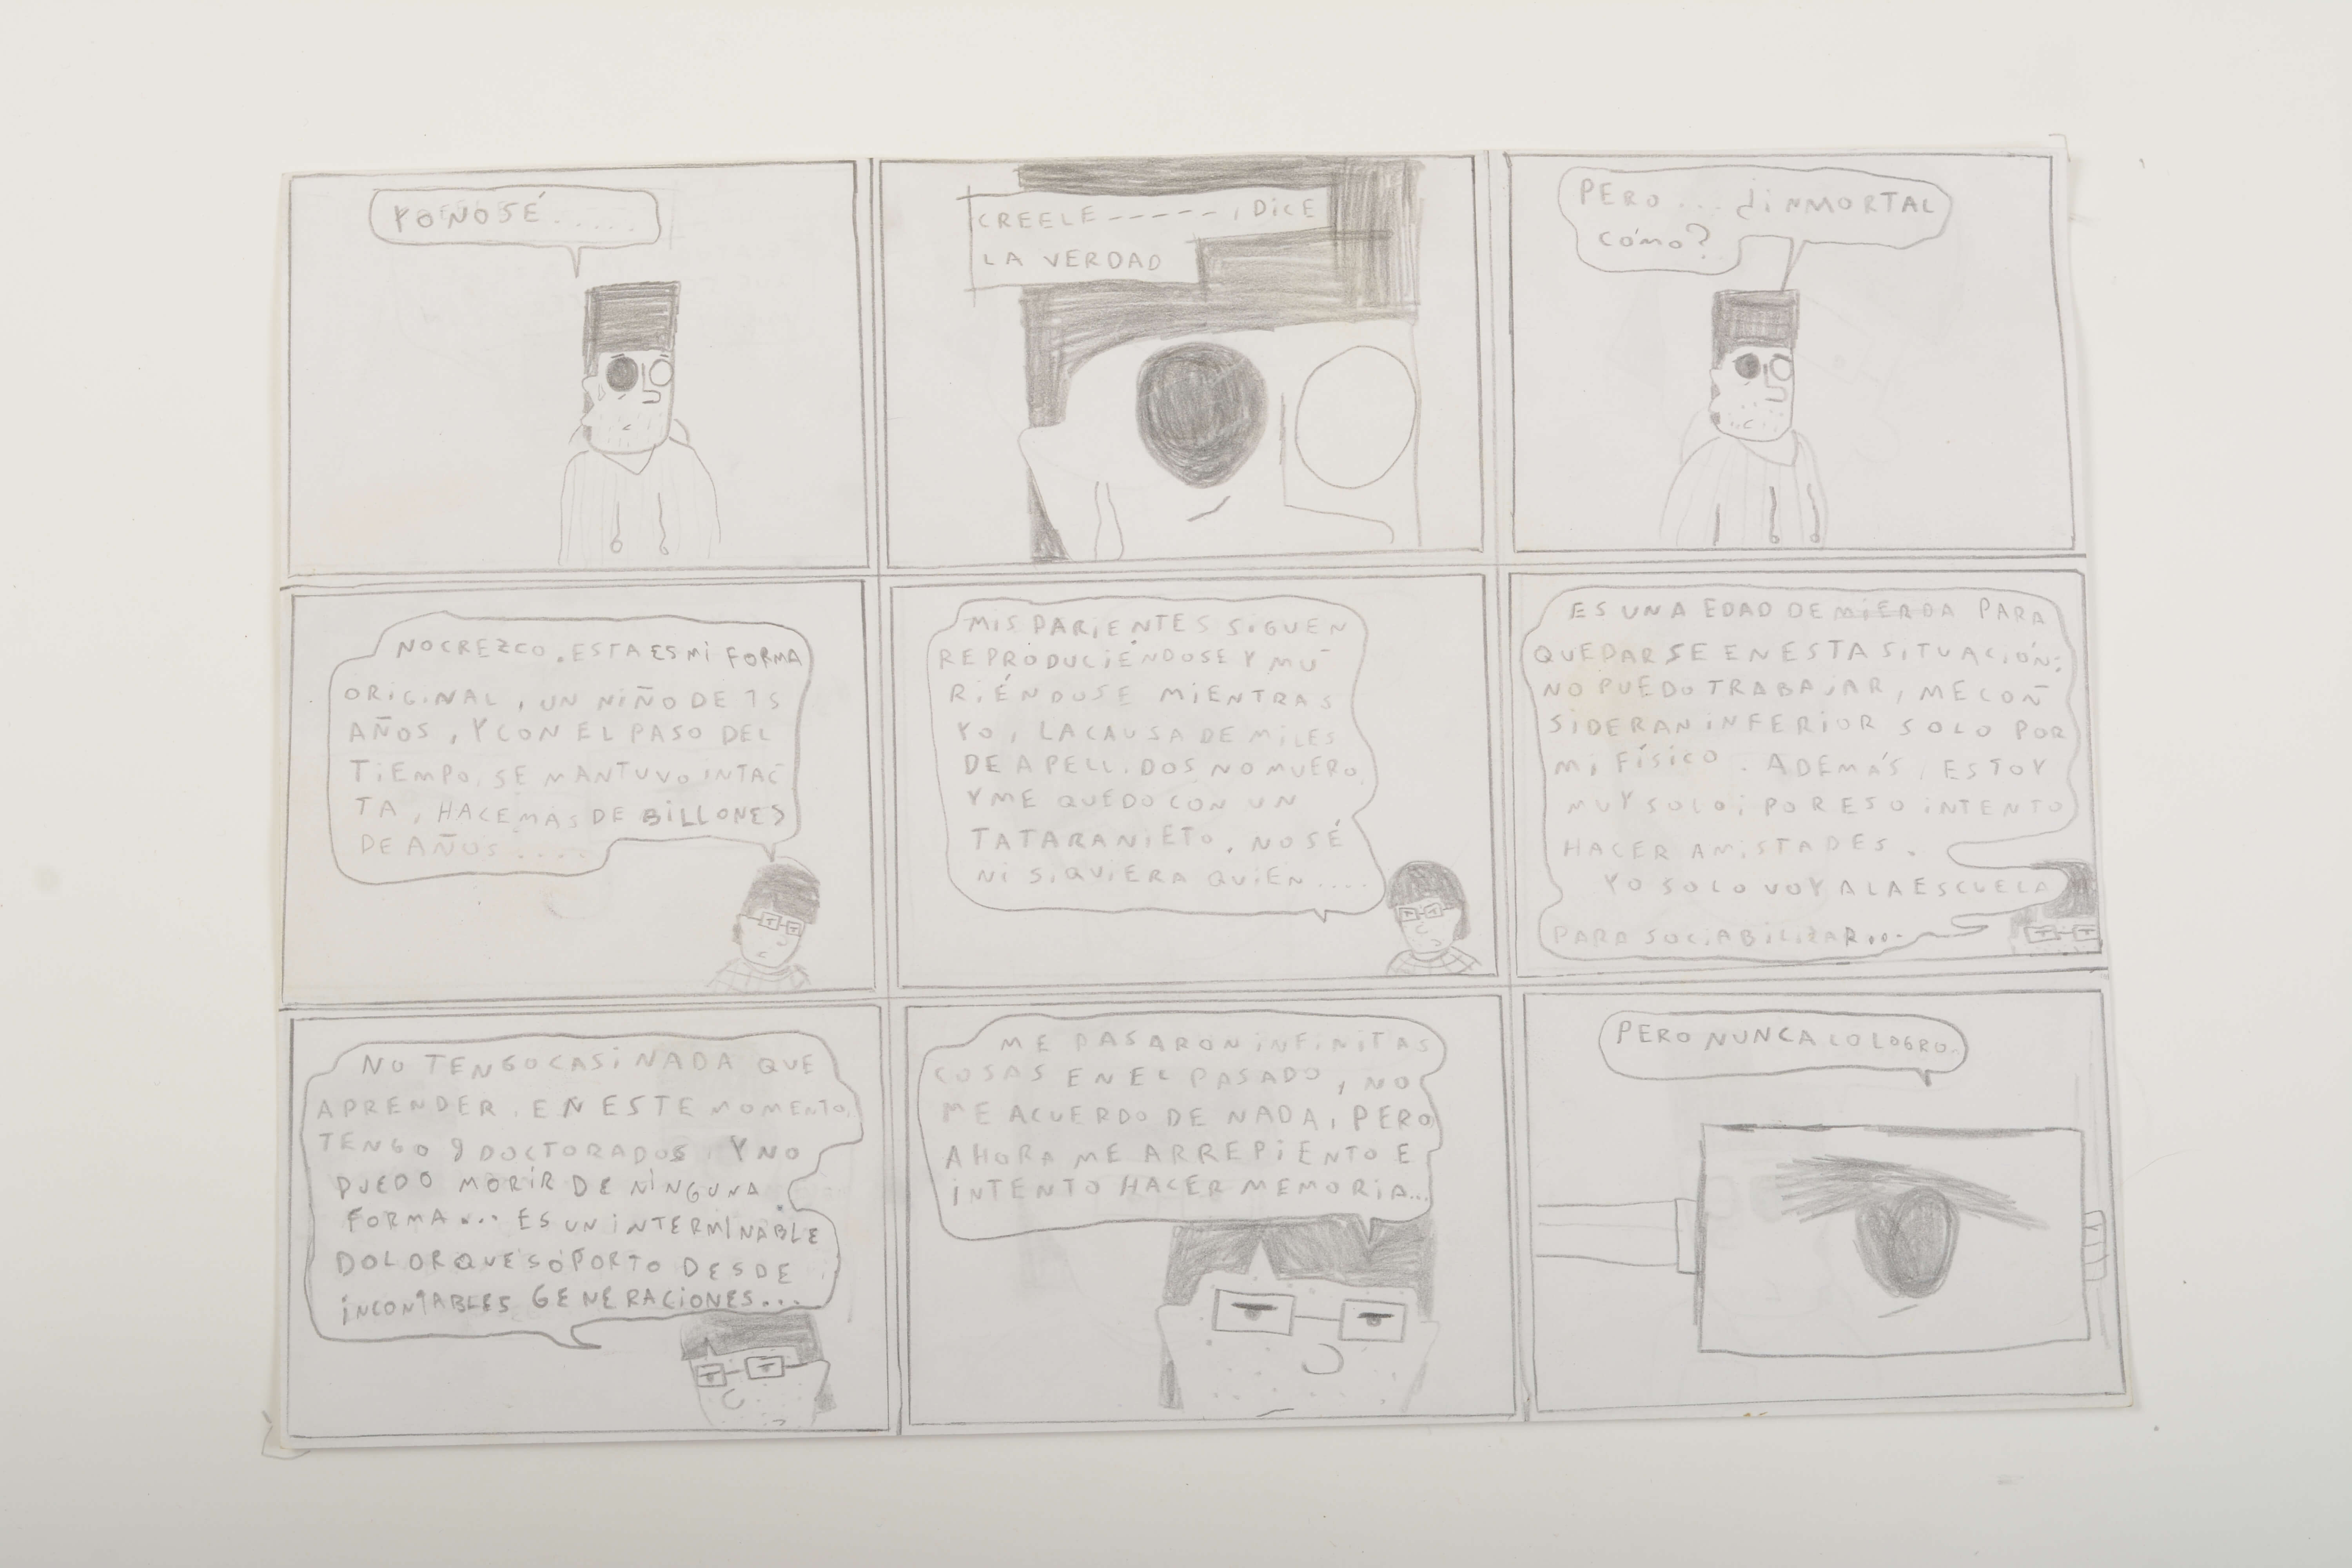 YO NO SÉ.....
CREELE-----, DICE
LA VERDAD
PERO... ¿iNMORTAL
CÓMO?
NO CREZCO. ESTA ES Mi FORMA
ORiGiNAL, UN NiÑO DE 15
AÑOS, Y CON EL PASO DEL
TiEMPO, SE MANTUVO INTAC-
TA, HACE MÁS DE BiLLONES
DE AÑOS....
MiS PARiENTES SiGUEN
REPRODUCiÉNDOSE Y MU-
RiÉNDOSE MiENTRAS
YO, LA CAUSA DE MiLES
DE APELLiDOS NO MUERO
Y ME QUEDO CON UN
TATARANiETO, NO SÉ
Ni SiQUiERA QUiÉN....
ES UNA EDAD DE MiERDA PARA
QUEDARSE EN ESTA SiTUACiÓN:
NO PUEDO TRABAJAR, ME CON-
SiDERAN iNFERiOR SOLO POR
Mi FÍSiCO. ADEMÁS, ESTOY
MUY SOLO; POR ESO iNTENTO
HACER AMiSTADES.
YO SOLO VOY A LA ESCUELA
PARA SOCiABiLiZAR...
NO TENGO CASi NADA QUE
APRENDER. EN ESTE MOMENTO,
TENGO 9 DOCTORADOS. Y NO
PUEDO MORiR DE NiNGUNA
FORMA... ES UN iNTERMiNABLE
DOLOR QUE SOPORTO DESDE
iNCONTABLES GENERACiONES...
ME PASARON iNFiNiTAS
COSAS EN EL PASADO, NO
ME ACUERDO DE NADA, PERO
AHORA ME ARREPiENTO E
iNTENTO HACER MEMORiA...
PERO NUNCA LO LOGRO.